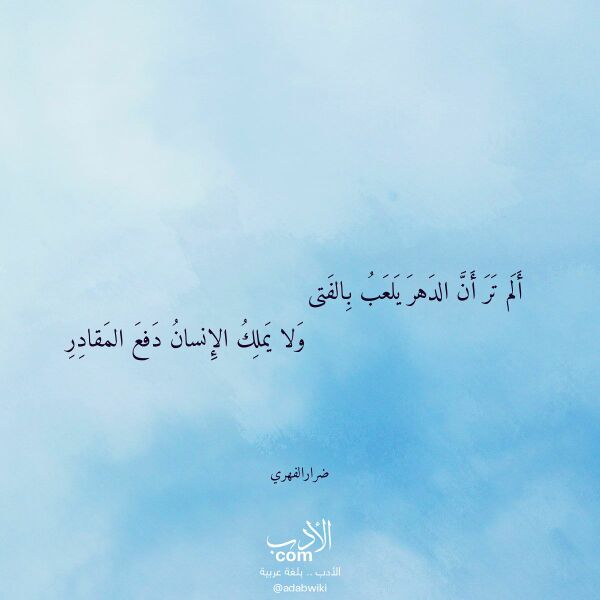 أَلَم تَرَ أَنَّ الدَهرَ يَلعَبُ بِالفَتى
وَلا يَملِكُ الإِنسانُ دَفعَ المَقادِرِ
ضرارالفهري
الأدب
com
الأدب .. بلغة عربية
@adabwiki